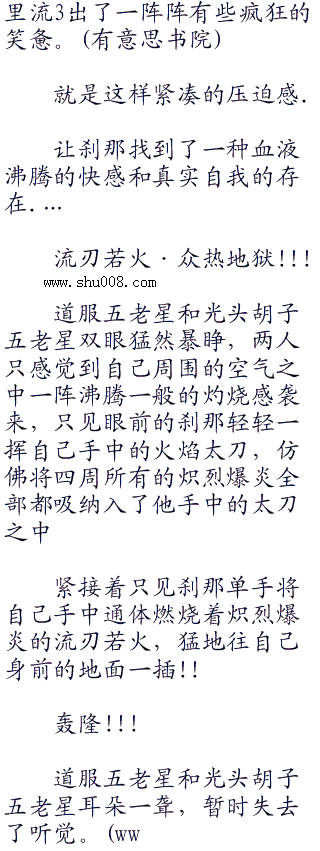 里流3出了一阵阵有些疯狂的
笑惫。(有意思书院)
就是这样紧凑的压迫感.
让刹那找到了一种血液
沸腾的快感和真实自我的存
在....
流刃若火·众热地狱!!!
www.shu008.com
道服五老星和光头胡子
五老星双眼猛然暴睁，两人
只感觉到自己周围的空气之
中一阵沸腾一般的灼烧感袭
来，只见眼前的刹那轻轻一
挥自己手中的火焰太刀，仿
佛将四周所有的炽烈爆炎全
部都吸纳入了他手中的太刀
之中
紧接着只见刹那单手将
自己手中通体燃烧着炽烈爆
炎的流刃若火，猛地往自己
身前的地面一插!!
轰隆!!!
道服五老星和光头胡子
五老星耳朵一聋，暂时失去
了听觉。(ww